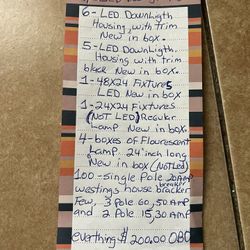 6-LED DownLigth
Housing, with trim
New in box.
5-LED DownLigth,
Housing with trim
black New in box.
1-48x24 Fixtures
LED New in box
1-24x24 Fixtures
(NOT LED) Regular
Lamp New in box.
4-boxes of Flourescent
Lamp 24" inch long
New in box (Not Led)
100-Single Pole 20Amp
breaker
westings house bracker
Few, 3 Pole 60,50 AMP
and 2 Pole 15,30 AMP
everthing $200.00 OBO